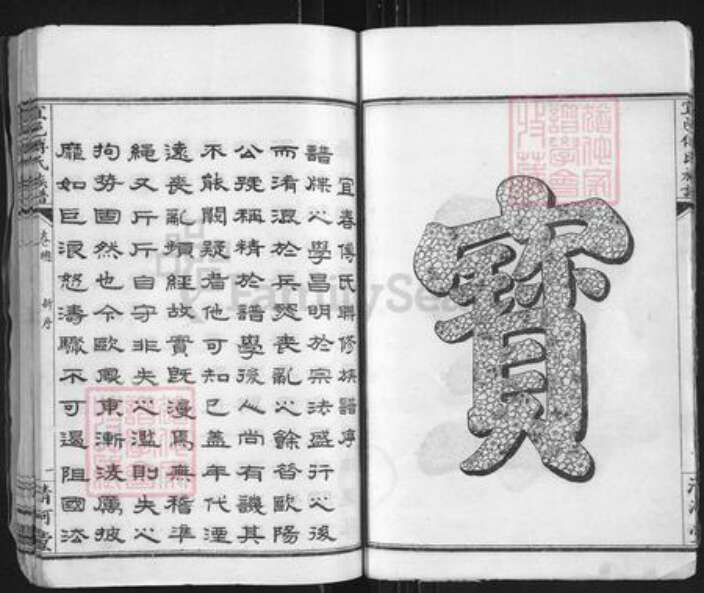 寶
宜春傅氏聯修族譜序
譜牒之學昌明於宗法盛行之後
而淆混於兵燹喪亂之餘昔歐陽
公號稱精於譜學後人尚有譏其
不能闕疑者他可知已蓋年代湮
遠喪亂頻經故實既漫焉無稽準
繩又斤斤自守非失之濫則失之
拘勢固然也今歐風東漸凌厲披
靡如巨浪怒濤驟不可遏阻國法
宜邑傅氏族譜
卷總 新序
一
清河堂
FamilySearch